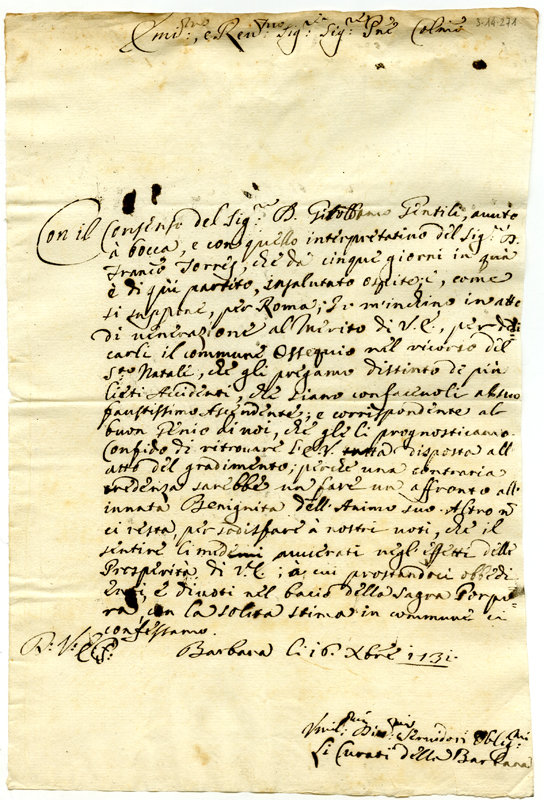 3-14-271
Emi.mo, e Rev.mo Sig.re Sig.re Pne Colmo
Con il Consenso del Sig.r D. Girolamo Gentili, avuto
à bocca, e con quello interpretativo del Sig.r D.
Franc.o Torres, che da cinque giorni in quà
è di quì partito, insalutato ospite, e, come
si suppone, per Roma; Io m'inchino in atto
di venerazione al Merito di V.E., per dedi=
carli il commune Ossequio nel ricorso del
Sto Natale, che gli pregamo distinto de più
lieti Accidenti, che siano confacevoli al suo
faustissimo Ascendente, e corrispondente al
buon Genio di noi, che glieli prognosticamo.
Confido di ritrovare l'E.V. tutta disposta all'
atto del gradimento; perche una contraria
credenza sarebbe un fare un affronto all'
innata Benignità dell'Animo suo. Altro nō
ci resta, per sodisfare à nostri voti, che il
sentire li medemi avverati negl'effetti delle
Prosperità di V.E.; à cui prostandoci obbedi
enti, e divoti nel bacio della Sagra Porpo=
ra, con la solita stima in commune ci
confessiamo.
D. V. E.
Barbara li 16. Xbre 1731.
Umil.mi Div.mi Servidori Oblig.mi
Li Curati della Barbara